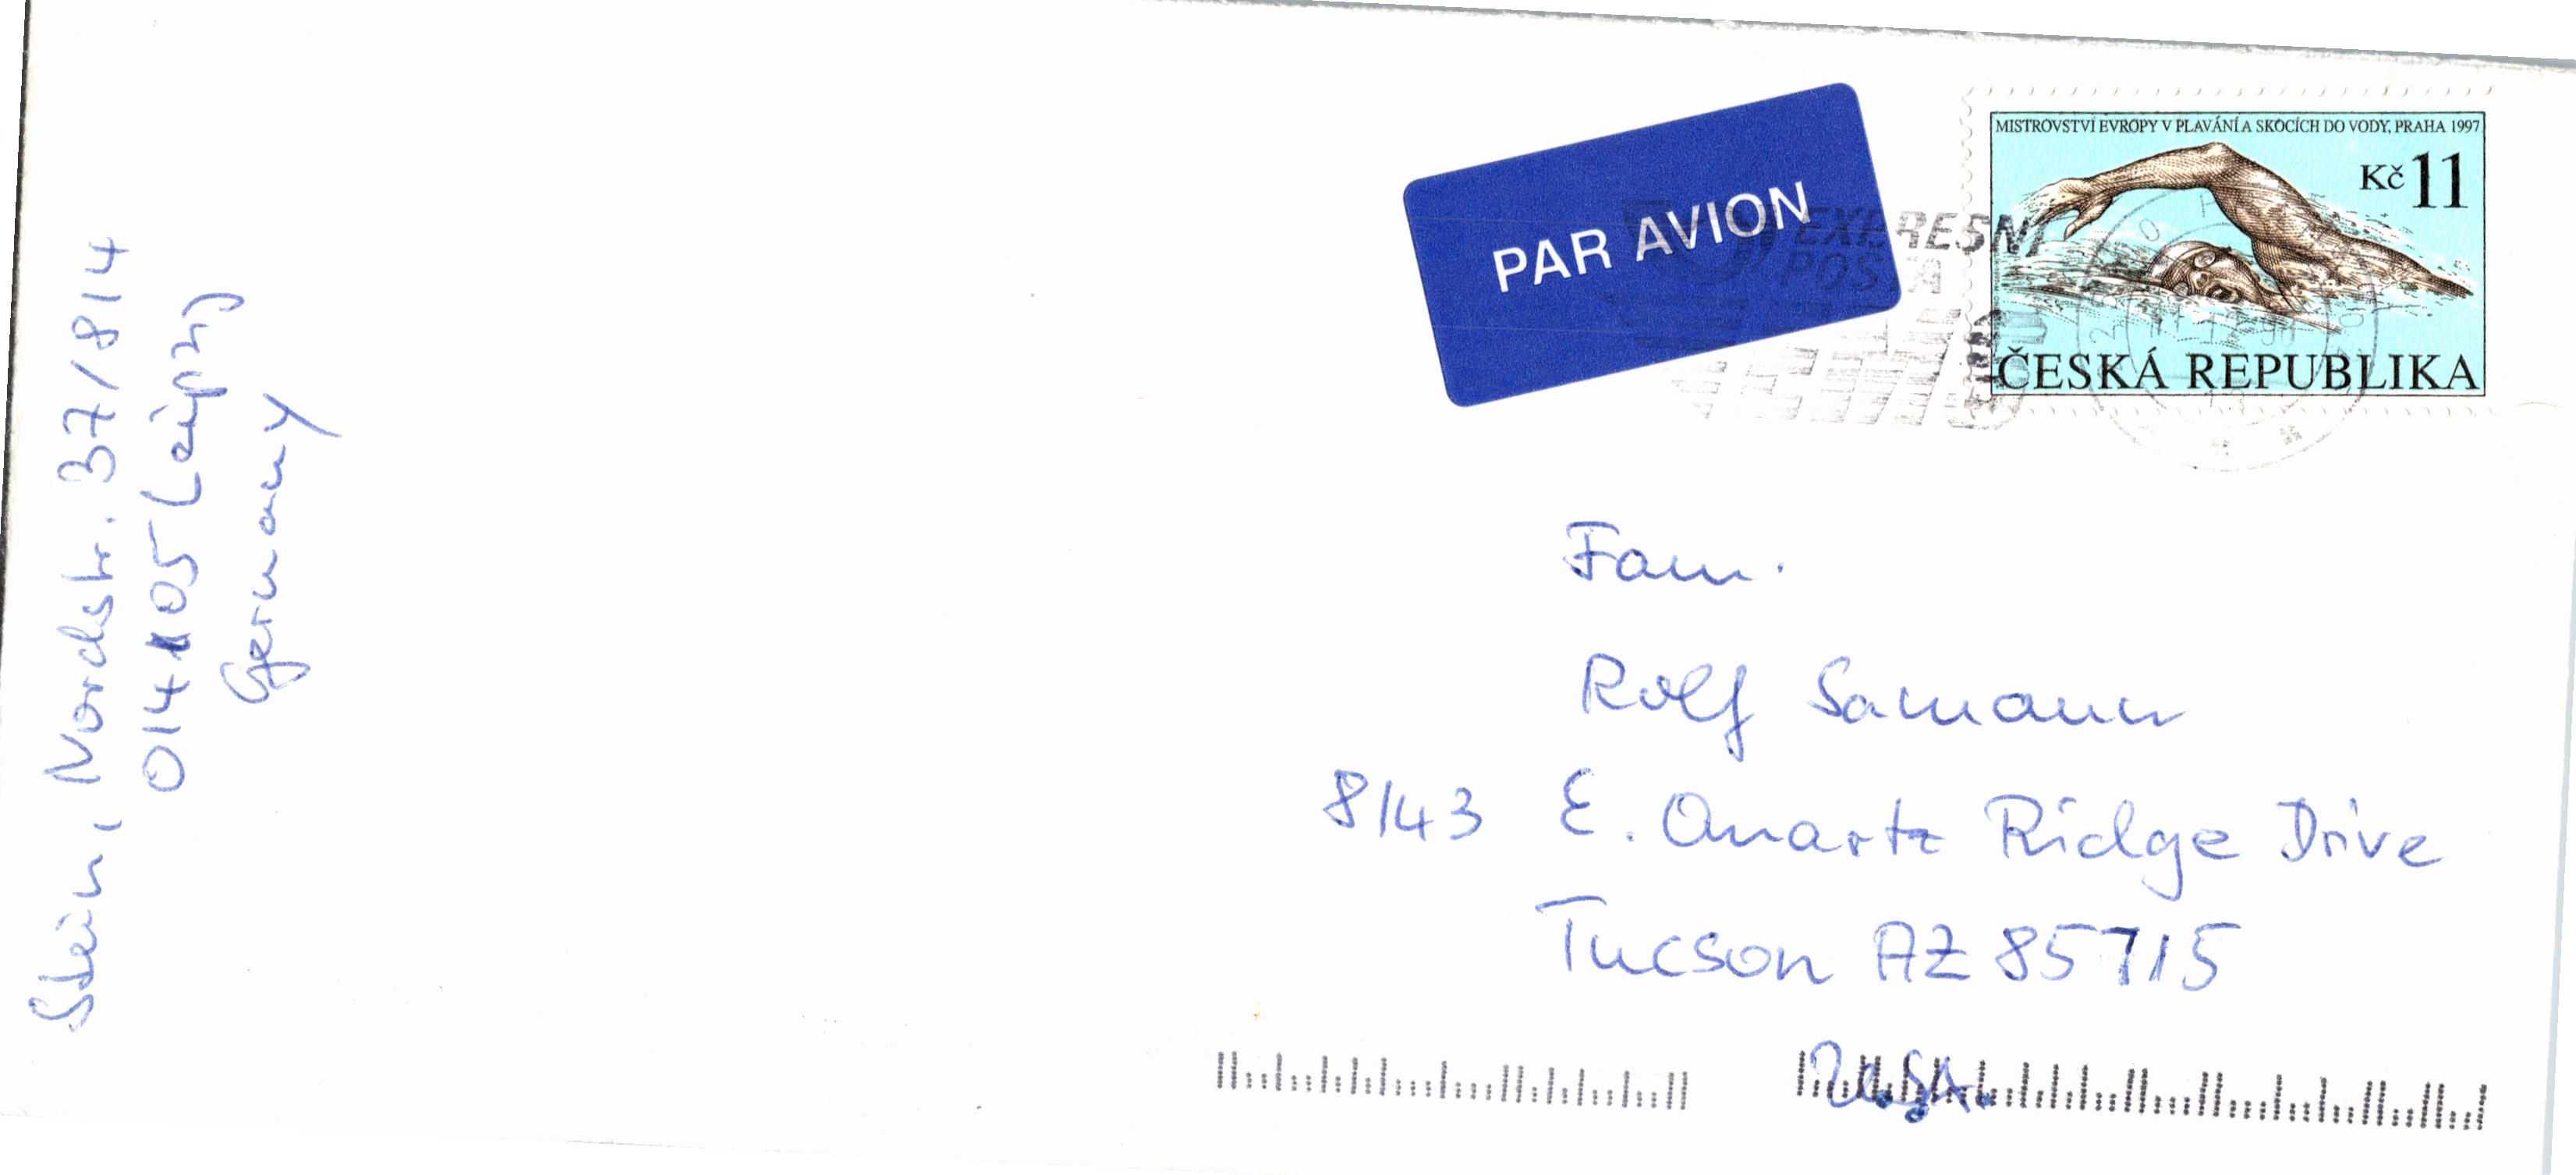 Stein, Nordstr. 37/814
04105 Leipzig
Germany
PAR AVION
EXPRESNÍ
POSTA
EMS
MISTROVSTVÍ EVROPY V PLAVÁNÍ A SKOCÍCH DO VODY, PRAHA 1997
Kč 11
ČESKÁ REPUBLIKA
Fam.
Rolf Samann
8143 E. Quartz Ridge Drive
Tucson AZ 85715
USA.